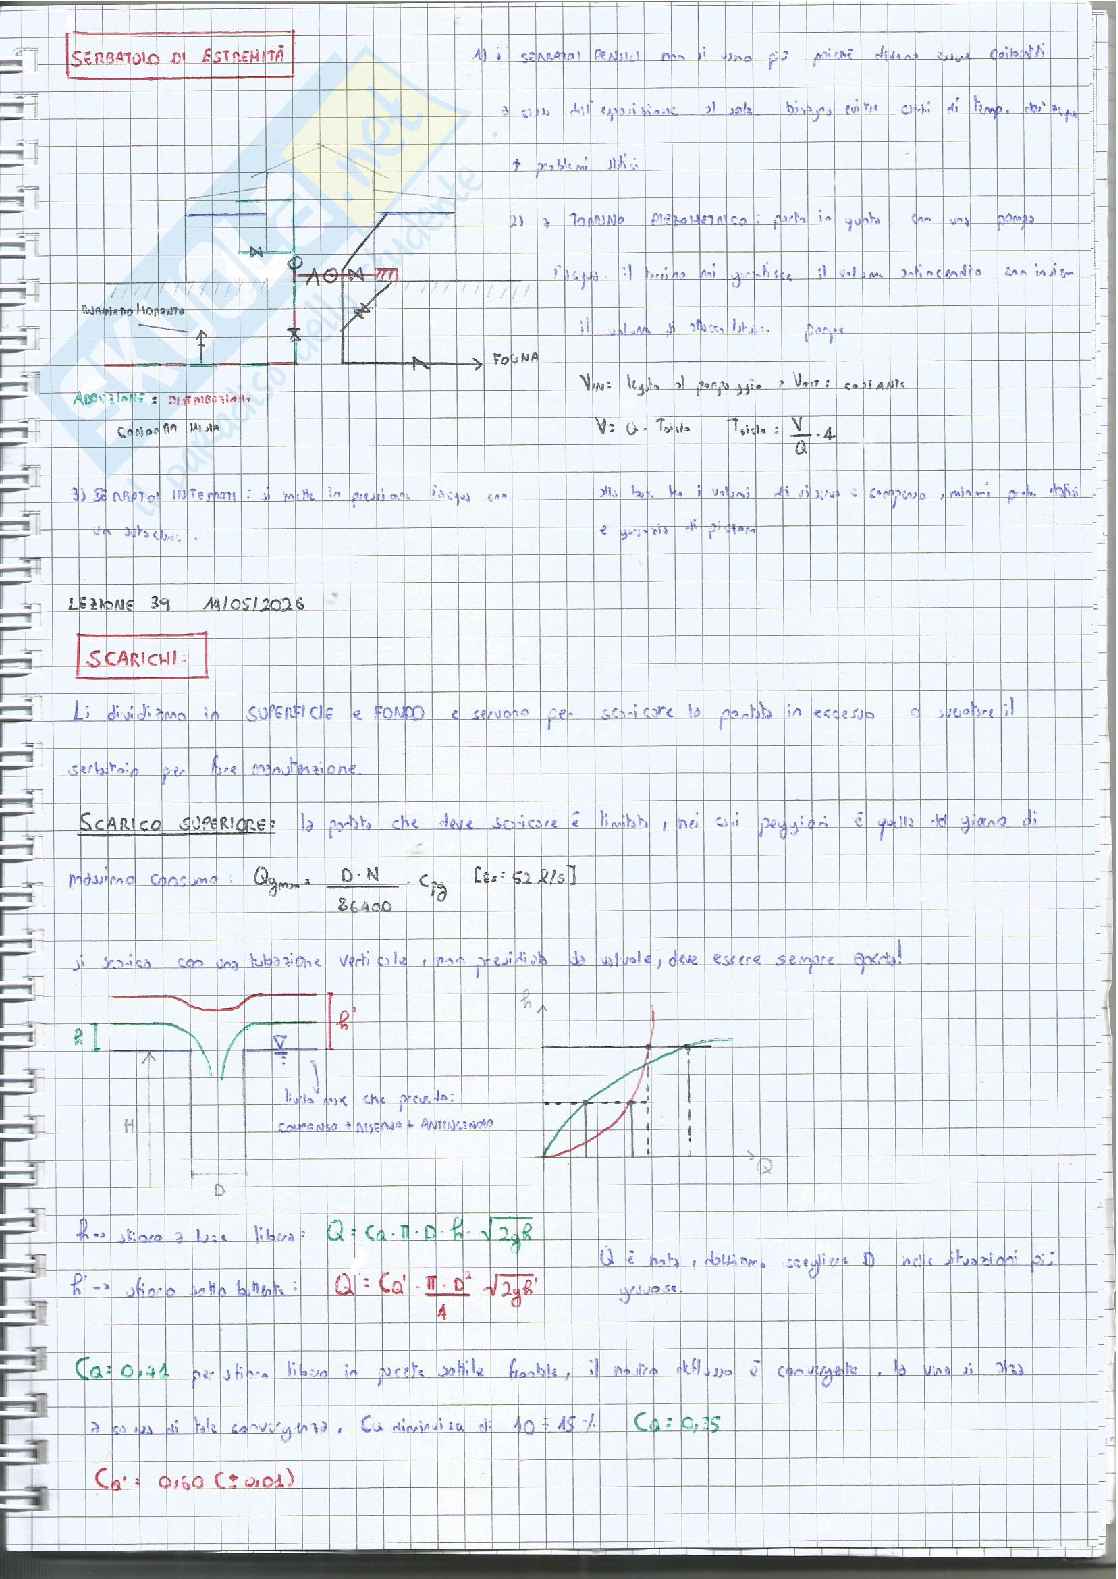 SERBATOIO DI ESTREMITÀ
1) i SERBATOI PENSILI non si usano più perché devono essere coibentati
a causa dell'esposizione al sole bisogna evitare di temp. dell'acqua
+ problemi statici
2) a TORRINO PIEZOMETRICO: porto in quota con una pompa
l'acqua. il torrino mi garantisce il volume antincendio
il volume di pompe
FOGNA
ADDUZIONE = DISTRIBUZIONE
CONDOTTA
VIN= legato al pompaggio VOUT= COSTANTE
V= Q · Tciclo Tciclo = V/Q · 4
3) SERBATOI INTERRATI: si mette in pressione l'acqua con
un autoclave.
alla base ho i volumi di riserva e compenso, minimi
e garanzia di
LEZIONE 39 14/05/2026
SCARICHI:
Li dividiamo in SUPERFICIE e FONDO e servono per scaricare la portata in eccesso o svuotare il
serbatoio per fare manutenzione.
SCARICO SUPERIORE: la portata che deve scaricare è limitata, nei casi peggiori è quella del giorno di
massimo consumo: Qgmax = D·N/86400 · Cpg [es: 52 l/s]
si scarica con una tubazione verticale, non presidiata da valvole, deve essere sempre aperta!
h
h'
h
livello max che prevedo:
COMPENSO + RISERVA + ANTINCENDIO
H
D
Q
h → sfioro a luce libera: Q = CQ · π · D · h · √2gh
h' → sfioro sotto battente: Q' = CQ' · π · D²/4 √2gh'
Q è nota, dobbiamo scegliere D nelle situazioni più
gravose.
CQ = 0,41 per sfioro libero in parete sottile frontale, il nostro deflusso è convergente, la vena si alza
a causa di tale convergenza. CQ diminuisce di 10 ÷ 15 % CQ = 0,35
CQ' = 0,60 (± 0,01)